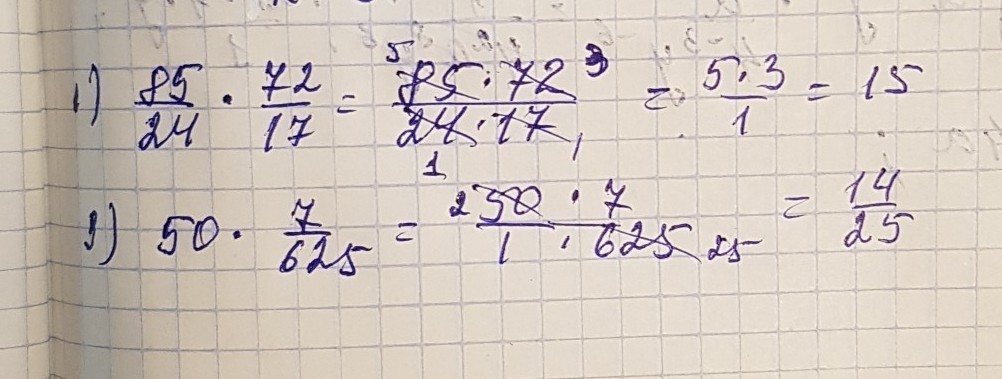 1) 85/24 · 72/17 = 5 85 · 72 3 / 24 · 17 1 1 = 5·3/1 = 15
3) 50 · 7/625 = 2 50 · 7 / 1 · 625 25 = 14/25